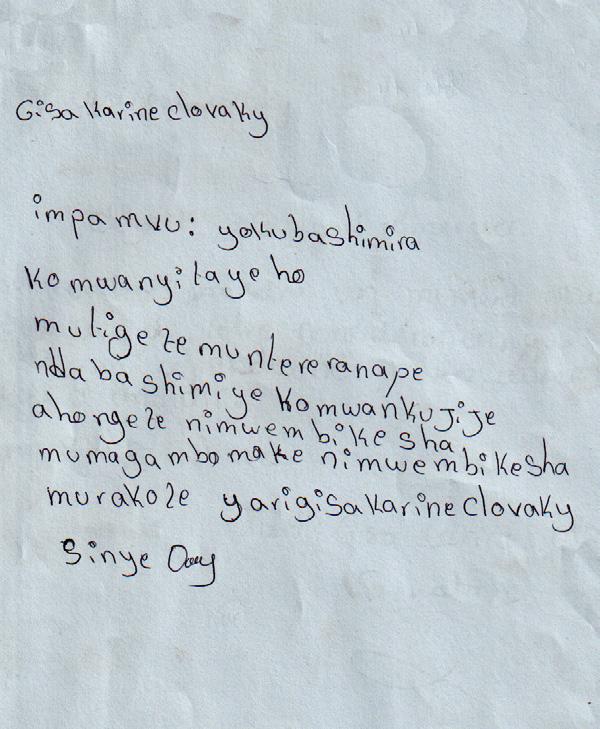 Gisa karine clovaky
impamvu: yokubashimira
ko mwanyitayeho
mutigeze muntereranape
ndabashimiye komwankujije
ahongeze nimwembikesha
mumagambomake nimwembikesha
murakoze yarigisakarineclovaky
Sinye